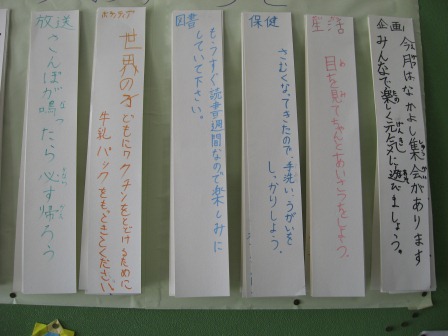 企画
今月はなかよし集会があります
みんなで楽しく元気に遊びましょう。
生活
目を見てちゃんとあいさつをしよう。
保健
さむくなってきたので、手洗い、うがいを
しっかりしよう。
図書
もうすぐ読書週間なので楽しみに
していて下さい。
ボランティア
世界の子どもにワクチンをとどけるために
牛乳パックをもってきてください。
放送
さんぽが鳴ったら必ず帰ろう